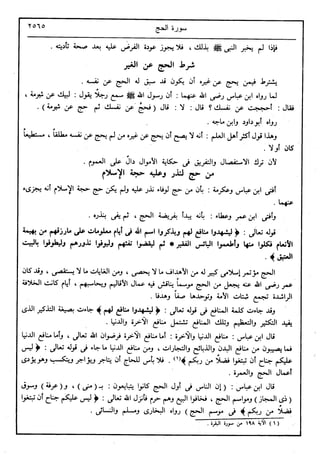 سورة الحج ٢٥٦٥
فإذا لم يخبر النبي ﷺ بذلك ، فلا يجوز عودة الفرض عليه بعد صحة تأديته .
شرط الحج عن الغير
يشترط فيمن يحج عن غيره أن يكون قد سبق له الحج عن نفسه .
لما رواه ابن عباس رضي الله عنهما : أن رسول الله ﷺ سمع رجلاً يقول : لبيك عن شبرمة ،
فقال : أحججت عن نفسك ؟ قال : لا : قال ( فحج عن نفسك ثم حج عن شبرمة ) .
رواه أبو داود وابن ماجه .
وهذا قول أكثر أهل العلم : أنه لا يصح أن يحج عن غيره من لم يحج عن نفسه مطلقاً ، مستطيعاً
كان أولا .
لأن ترك الاستفصال والتفريق في حكاية الأموال دالٌ على العموم .
من حج لنذر وعليه حجة الإسلام
أفتى ابن عباس وعكرمة : بأن من حج لوفاء نذر عليه ولم يكن حج حجة الإسلام أنه يجزىء
عنهما .
وأفتى ابن عمر وعطاء : بأنه يبدأ بفريضة الحج ، ثم يفى بنذره .
قوله تعالى : ﴿ ليشهدوا منافع لهم ويذكروا اسم الله فى أيام معلومات على مارزقهم من بهيمة
الأنعام فكلوا منها وأطعموا البائس الفقير * ثم ليقضوا تفثهم وليوفوا نذورهم وليطوفوا بالبيت
العتيق ﴾ .
الحج مؤتمر إسلامي كبير له من الأهداف ما لا يحصى ، ومن الغايات ما لا يستقصى ، وقد كان
عمر رضى الله عنه يجعل من الحج موسماً يناقش فيه عمال الأقاليم ويحاسبهم ، أيام كانت الخلافة
الراشدة تجمع شتات الأمة وتوحدها صفاً وهدفا .
وقد جاءت كلمة المنافع فى قوله تعالى : ﴿ ليشهدوا منافع لهم ﴾ جاءت بصيغة التنكير الذى
يفيد التكثير والتعظيم وتلك المنافع تشتمل منافع الآخرة والدنيا .
قال ابن عباس : منافع الدنيا والآخرة : أما منافع الآخرة فرضوان الله تعالى ، وأما منافع الدنيا
فما يصيبون من منافع البدن والذبائح والتجارات ، ومن منافع الدنيا ما جاء فى قوله تعالى : ﴿ ليس
عليكم جناح أن تبتغوا فضلاً من ربكم ﴾(١) . فلا بأس للحاج أن يتاجر ويؤاجر ويتكسب وهو يؤدى
أعمال الحج والعمرة .
قال ابن عباس : ( إن الناس فى أول الحج كانوا يتبايعون : بـ ( منى ) ، و ( عرفة ) وسوق
( ذى المجاز ) ومواسم الحج ، فخافوا البيع وهم حرم فأنزل الله تعالى : ﴿ ليس عليكم جناح أن تبتغوا
فضلاً من ربكم ﴾ فى موسم الحج ) رواه البخارى ومسلم والنسائى .
( ١ ) الآية ١٩٨ من سورة البقرة .